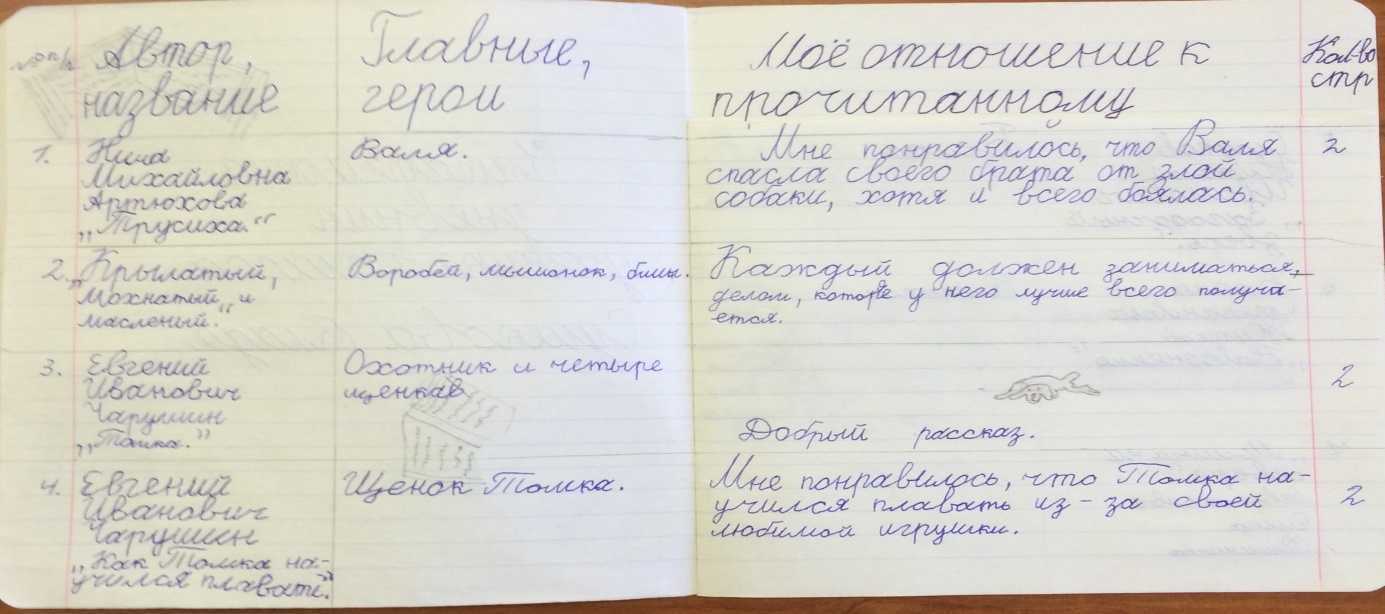 №п/п
Автор,
название
Главные,
герои
Моё отношение к
прочитанному
Кол-во
стр
1.
Нина
Михайловна
Артюхова
„Трусиха.“
Валя.
Мне понравилось, что Валя
спасла своего брата от злой
собаки, хотя и всего боялась.
2
2.
„Крылатый,
мохнатый и
масленый.“
Воробей, мышонок, блин.
Каждый должен заниматься,
делом, которое у него лучше всего получа-
ется.
3.
Евгений
Иванович
Чарушин
„Томка.“
Охотник и четыре
щенков
Добрый рассказ.
2
4.
Евгений
Иванович
Чарушин
„Как Томка на-
учился плавать.“
Щенок Томка.
Мне понравилось, что Томка на-
учился плавать из-за своей
любимой игрушки.
2